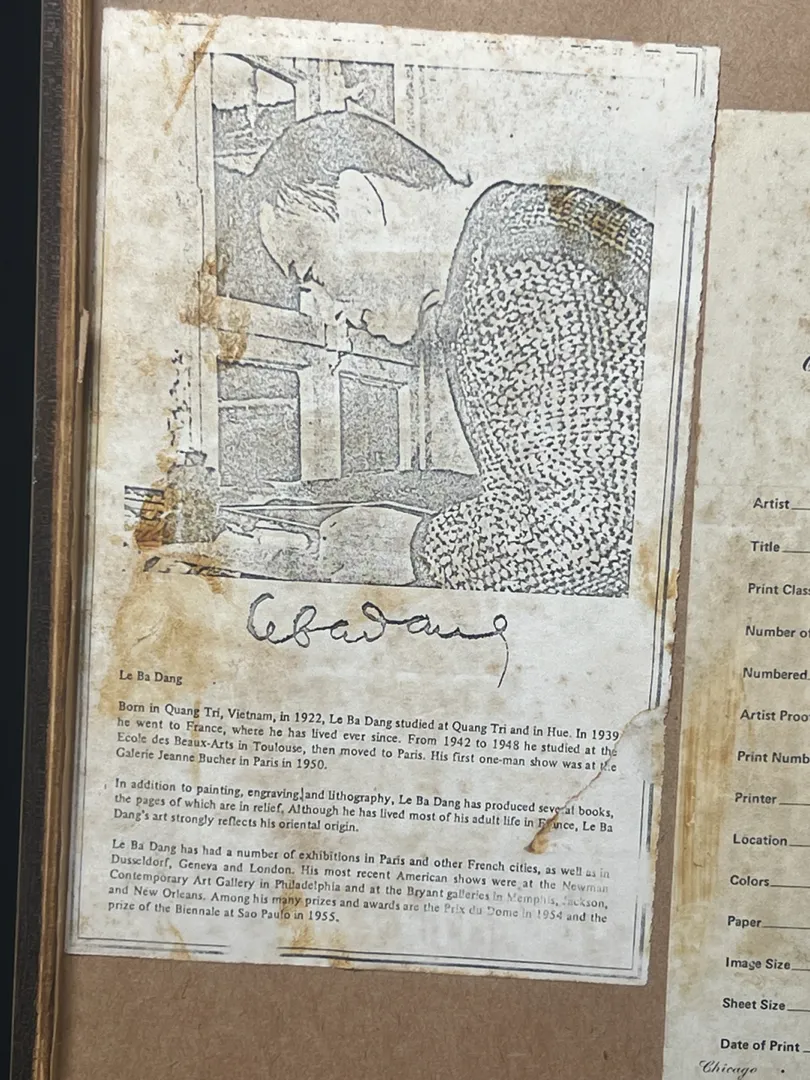 Lebadang
Le Ba Dang
Born in Quang Tri, Vietnam, in 1922, Le Ba Dang studied at Quang Tri and in Hue. In 1939
he went to France, where he has lived ever since. From 1942 to 1948 he studied at the
Ecole des Beaux-Arts in Toulouse, then moved to Paris. His first one-man show was at the
Galerie Jeanne Bucher in Paris in 1950.
In addition to painting, engraving, and lithography, Le Ba Dang has produced several books,
the pages of which are in relief. Although he has lived most of his adult life in France, Le Ba
Dang's art strongly reflects his oriental origin.
Le Ba Dang has had a number of exhibitions in Paris and other French cities, as well as in
Dusseldorf, Geneva and London. His most recent American shows were at the Newman
Contemporary Art Gallery in Philadelphia and at the Bryant galleries in Memphis, Jackson,
and New Orleans. Among his many prizes and awards are the Prix du Dome in 1954 and the
prize of the Biennale at Sao Paulo in 1955.
Artist
Title
Print Clas
Number o
Numbered
Artist Proo
Print Numb
Printer
Location
Colors
Paper
Image Size
Sheet Size
Date of Print
Chicago •